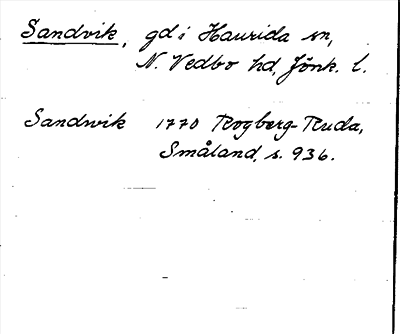 Sandvik, gd i Haurida sn,
N. Vedbo hd, Jönk. l.
Sandwik 1770 Rogberg-Ruda,
Småland, s. 936.